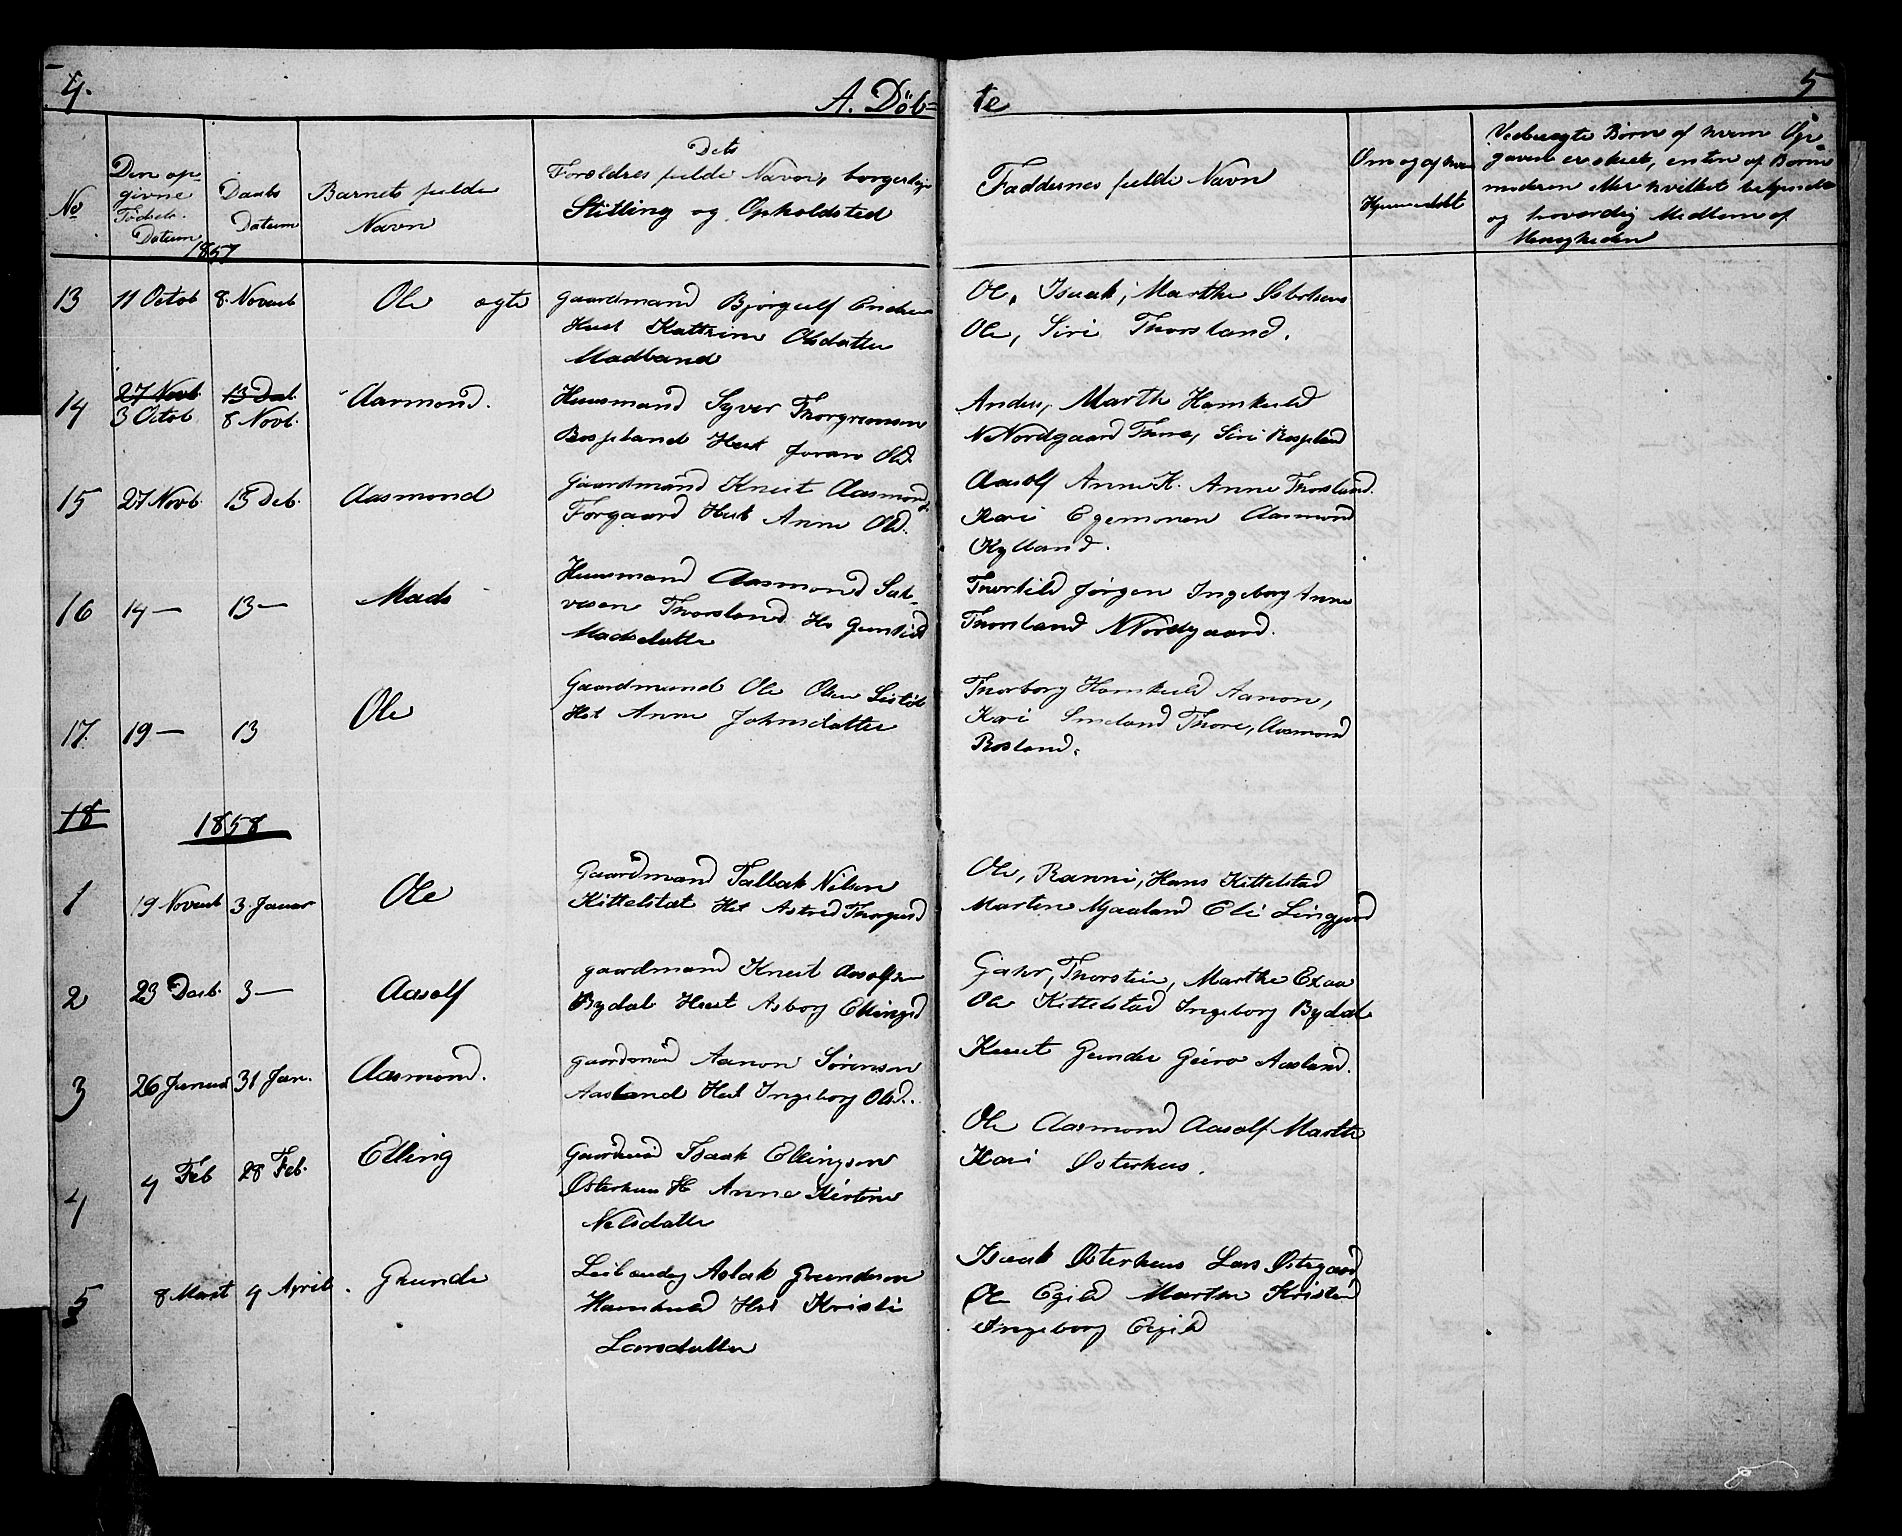 4.
A. Döb=
te
5
No
Den op-
givne
Födsels
Datum
1857
Daabs
Datum
Barnets fulde
Navn
Dets
Forældres fulde Navne, borgerlige
Stilling og Opholdsted
Faddernes fulde Navn
Om og af hvem
Hjemmedøbt
Uægte Børn af hvem Op-
gaven er skeet, enten af Barne
moderen eller hvilket bekjendt
og troværdig Medlem af
Menigheden
13 11 Octob 8. Novemb Ole ægte
gaardmand Bjørgulf
Hust Kattrine Olsdatter
Madland
Ole, Isaak, Marthe Østerhus
Ole, Siri Thorsland.
14 27 Novb. 13 Deb.
3 Octob 8 Novb.
Aasmond.
Huusmand Syver Thorgrimsen
Hust Joran Old.
Anders, Marthe Hamkold
N Nordgaard Thore, Siri
15 27 Novb 13 Deb. Aasmond
Gaardmand Knut Aasmonds.
Forgaard Hust Anne Old.
Aasolf Anne K. Anne Thorsland.
Kari Egemonen Aasmond
Kylland.
16 14 — 13 — Mads
Huusmand Aasmond Sal-
vesen Thorsland Hu Gunhild
Madsdatter
Thorkild Jørgen Ingeborg Anne
Thorsland N Nordgaard.
17. 19 — 13 Ole
Gaardmand Ole Olsen
Hst Anne Johnsdatter
Thorborg Hamkold Aanon,
Kari Smeland Thore, Aasmond
Rosland.
18
1858
1 19 Novemb 3. Januar Ole
Gaardmand Tallak Nilsen
Kittelstat Hst Astred Thorgusd
Ole, Ranni, Hans Kittelstad
Marten Mjaaland Eli
2 23 Desb. 3 — Aasolf
gaardmand Knut Aasolfsen
Bydal Hust Asborg Ellingsd
Thorstin, Marthe Exaa
Ole Kittelstad Ingeborg Bydal
3 26 Januar 31 Jan. Aasmond.
gaardmd Aanon Sørenson
Aasland Hst Ingeborg Old.
Knut Gunder Guro Aasland.
4 4 Feb 28 Feb. Elling
Gaardmd Isaak Ellingson
Østerhus H Anne Kirstine
Nelsdatter
Ole Aasmond Aasolf Marthe
Kari Østerhus.
5 8 Mart 4 April. Gunde
Aslak Gundersen
Hamkold Hst Kristi
Larsdatter
Isaak Østerhus Lars Østegaard
Ole Egild Marthe Kristen
Ingeborg Egild